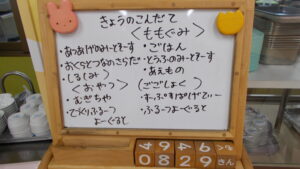 きょうのこんだて
<ももぐみ>
・あつあげのみーとそーす
・ごはん
・おくらとつなのさらだ
・とうふのみーとそーす
・しるしみ
・あえもの
<おやつ>
(ごごしょく)
・むぎちゃ
・すーぷすぱげてぃー
・てづくりふるーつよーぐると
・ふるーつよーぐると
さん